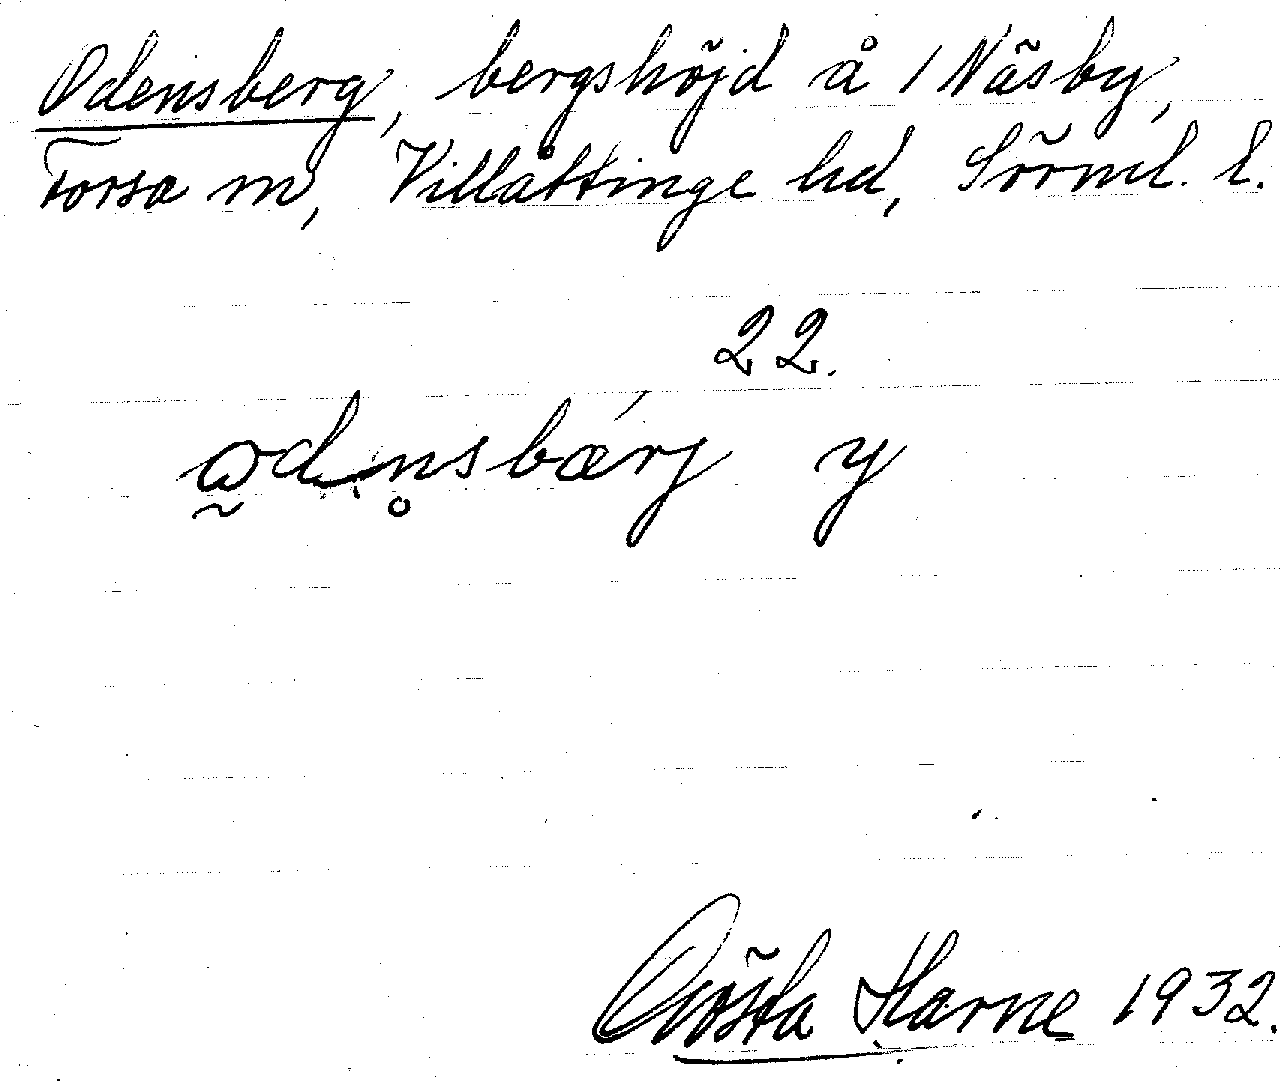 Odensberg, bergshöjd å 1 Näsby,
Torsa sn, Villåttinge hd, Sörml. l.
22.
ωdn̥sbærj y
Gösta Harne 1932.